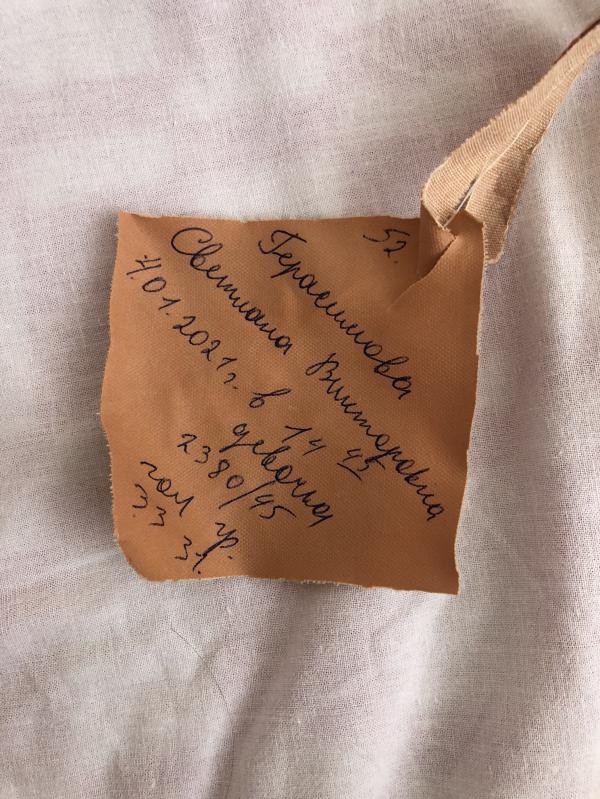 52.
Герасимова
Светлана Викторовна
4.01.2021г. в 14 45
девочка
2380/45
гол гр.
33 31